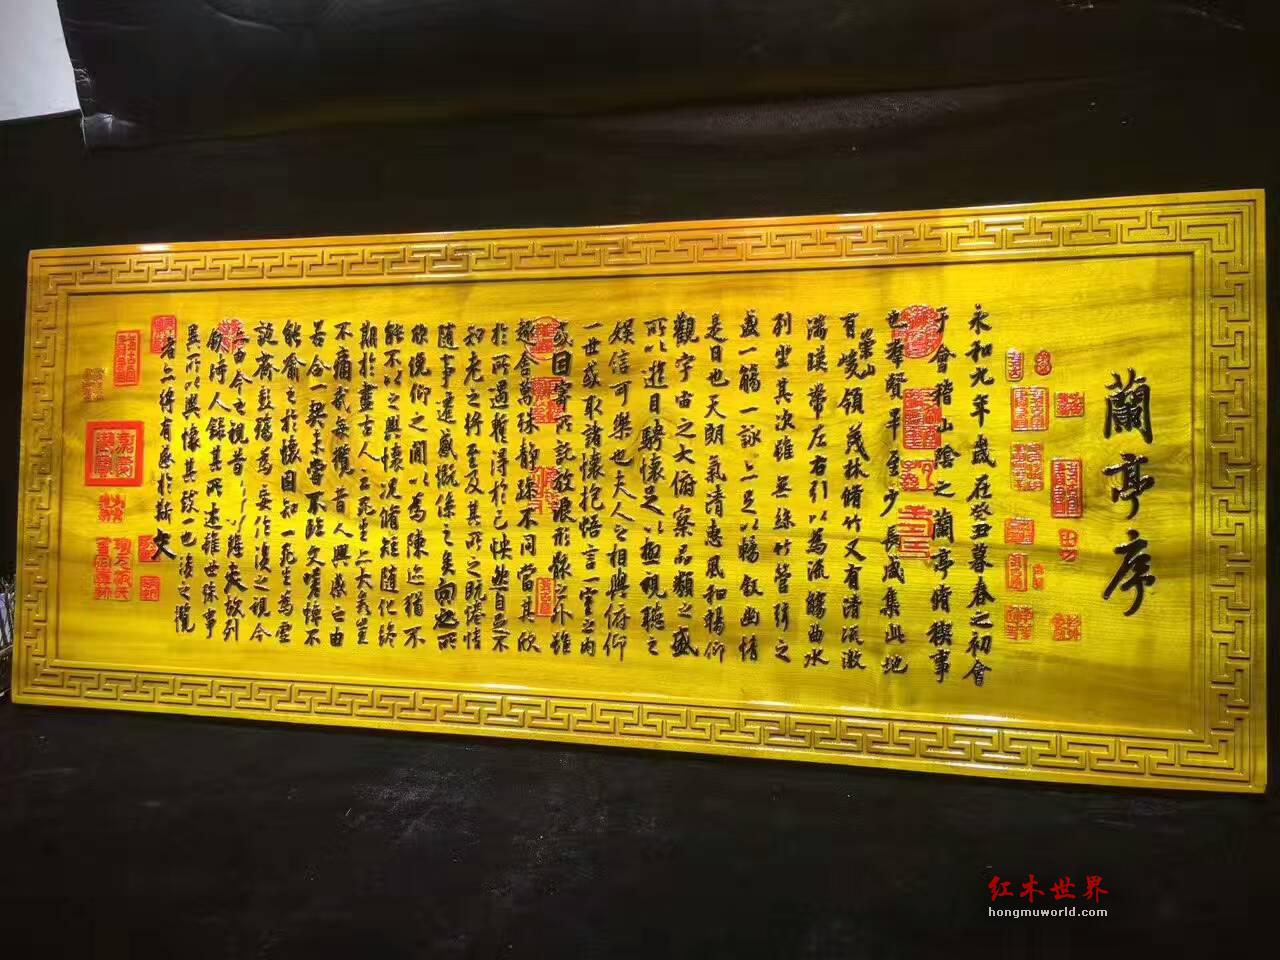 蘭亭序
永和九年歲在癸丑暮春之初會
于會稽山陰之蘭亭脩稧事
也羣賢畢至少長咸集此地
崇山
有峻領茂林脩竹又有清流激
湍暎帶左右引以為流觴曲水
列坐其次雖無絲竹管弦之
盛一觴一詠亦足以暢敘幽情
是日也天朗氣清惠風和暢仰
觀宇宙之大俯察品類之盛
所以遊目騁懷足以極視聽之
娛信可樂也夫人之相與俯仰
一世或取諸懷抱悟言一室之內
或因寄所託放浪形骸之外雖
趣舍萬殊靜躁不同當其欣
於所遇暫得於己怏然自足不
知老之將至及其所之既惓情
隨事遷感慨係之矣向之所
欣俛仰之閒以為陳迹猶不
能不以之興懷況脩短隨化終
期於盡古人云死生亦大矣豈
不痛哉每攬昔人興感之由
若合一契未嘗不臨文嗟悼不
能喻之於懷固知一死生為虛
誕齊彭殤為妄作後之視今
亦由今之視昔悲夫故列
敘時人錄其所述雖世殊事
異所以興懷其致一也後之攬
者亦將有感於斯文
红木世界
hongmuworld.com